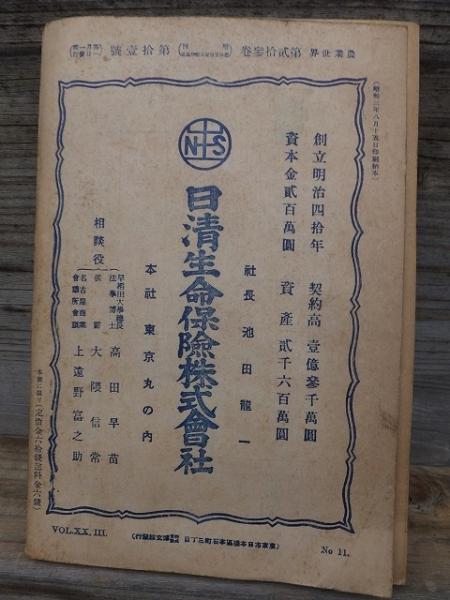 農業世界 第貳拾參卷 第拾壹號
(昭和三年八月十五日印刷納本)
創立明治四拾年 契約高 壹億參千萬圓
資本金貳百萬圓 資產 貳千六百萬圓
NS
社長 池田龍一
日清生命保險株式會社
本社 東京丸の內
相談役
早稻田大學總長 法學博士 高田早苗
侯爵 大隈信常
名古屋商業會議所會頭 上遠野富之助
VOL.XX, III.
No 11.